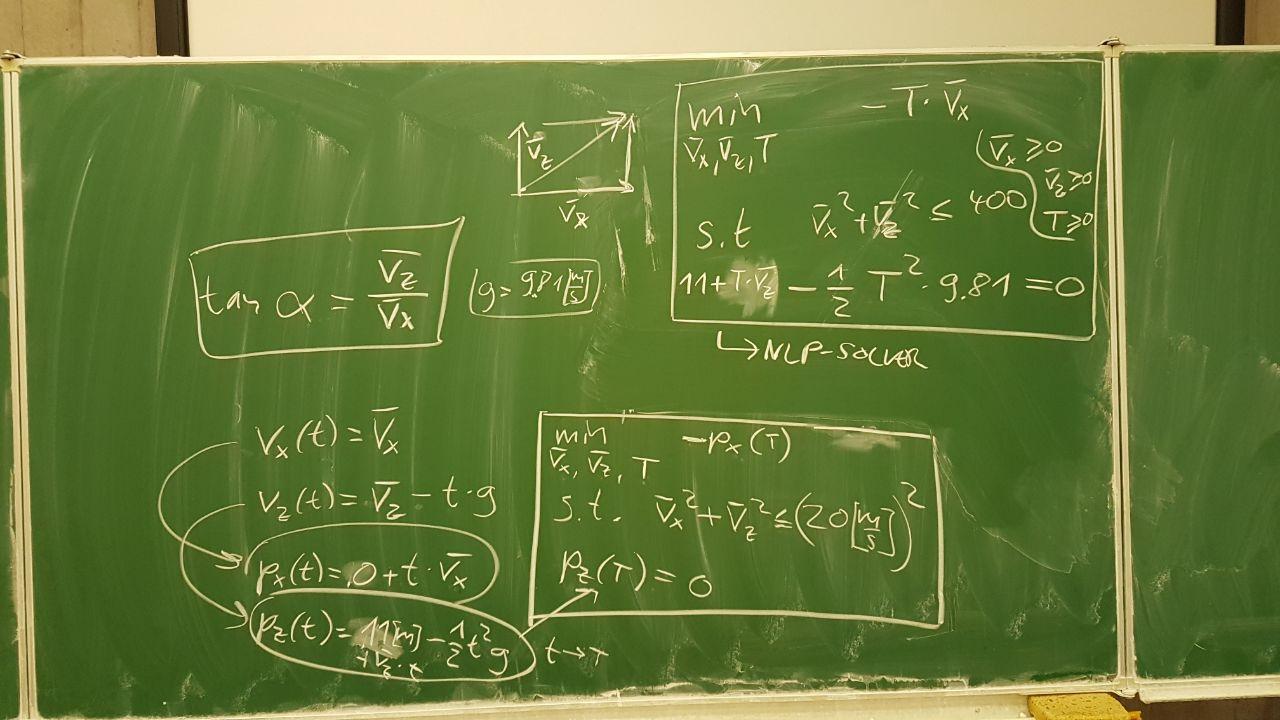 tan α = v̄z / v̄x
v̄z
v̄x
g = 9.81 [m/s]
min − T · v̄x
v̄x, v̄z, T
v̄x ≥ 0
v̄z ≥ 0
T ≥ 0
s.t v̄x² + v̄z² ≤ 400
11 + T · v̄z − 1/2 T² · 9.81 = 0
↳ NLP-SOLVER
vx(t) = v̄x
vz(t) = v̄z − t · g
px(t) = 0 + t · v̄x
pz(t) = 11[m] − 1/2 t² g
+ v̄z · t
t → T
min − px(T)
v̄x, v̄z, T
s.t. v̄x² + v̄z² ≤ (20 [m/s])²
pz(T) = 0